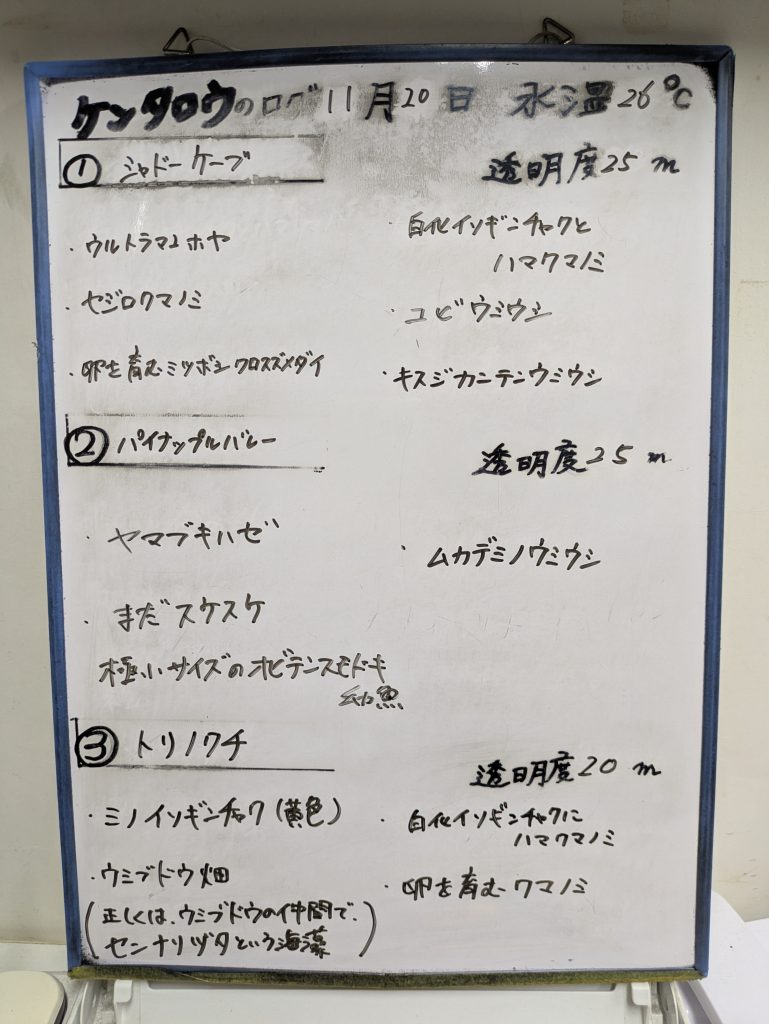 ケンタロウのログ 11月20日 水温26℃
① シャドーケーブ 透明度25m
・ウルトラマンホヤ
・セジロクマノミ
・卵を育むミツボシクロスズメダイ
・白化イソギンチャクと
ハマクマノミ
・コビウミウシ
・キスジカンテンウミウシ
② パイナップルバレー 透明度25m
・ヤマブキハゼ
・まだスケスケ
極小サイズのオビテンスモドキ
幼魚
・ムカデミノウミウシ
③ トリノクチ 透明度20m
・ミノイソギンチャク(黄色)
・ウミブドウ畑
(正しくは、ウミブドウの仲間で、
センナリヅタという海藻)
・白化イソギンチャクに
ハマクマノミ
・卵を育むクマノミ